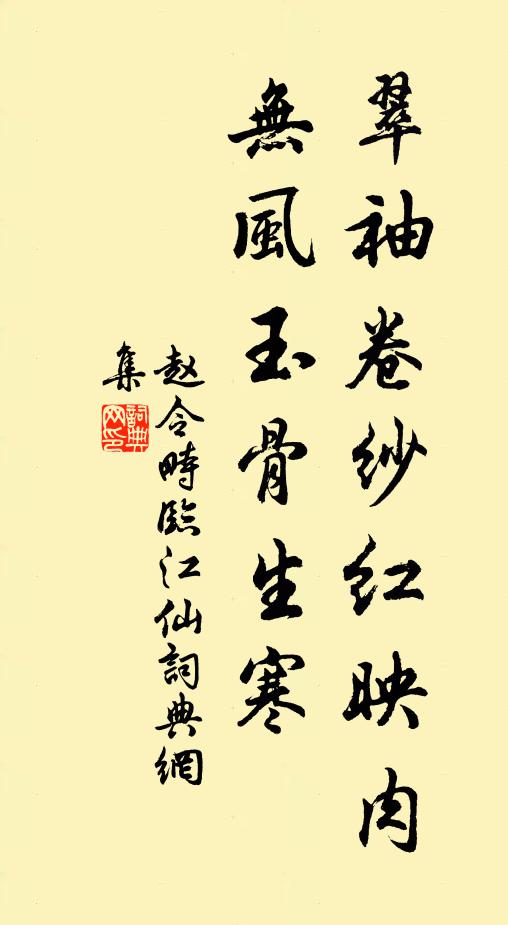 翠袖卷纱红映肉
無風玉骨生寒
赵令畤臨江仙詞典網
集
詞典網印